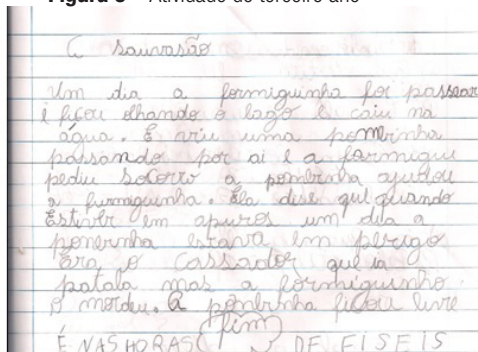 Figura 3 – Atividade do terceiro ano
A sauvasão
Um dia a formiguinha foi passear
e ficou olhando o lago e caiu na
água. E viu uma pombinha
passando por ai e a formigui
pediu socorro a pombinha ajudou
a furmiguinha. Ela dise que quando
Estiver em apuros um dia a
ponbinha estava em perigo
Era o cassador que ia
patala mas a formiguinho
o mordeu. A ponbinha ficou livre
fim
É NAS HORAS DE FISEIS